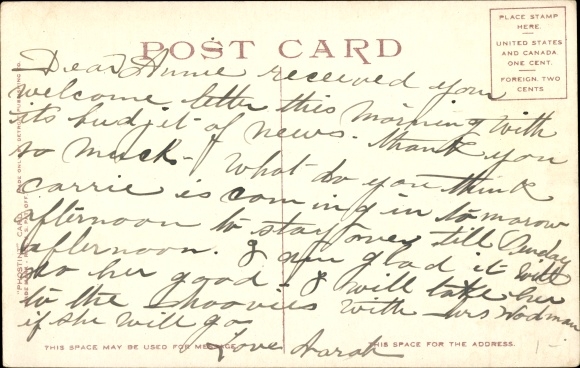 POST CARD
PLACE STAMP
HERE.
UNITED STATES
AND CANADA
ONE CENT.
FOREIGN, TWO
CENTS
Dear Annie received your
welcome letter this morning with
its budjit of news. thank you
so much- What do you think
Carrie is coming in tomorow
afternoon to stay over till Sunday
afternoon. I am glad it will
do her good - I will take her
to the moovies with Mrs Wodman
if she will go
Love Sarah
THIS SPACE MAY BE USED FOR MESSAGE.
THIS SPACE FOR THE ADDRESS.